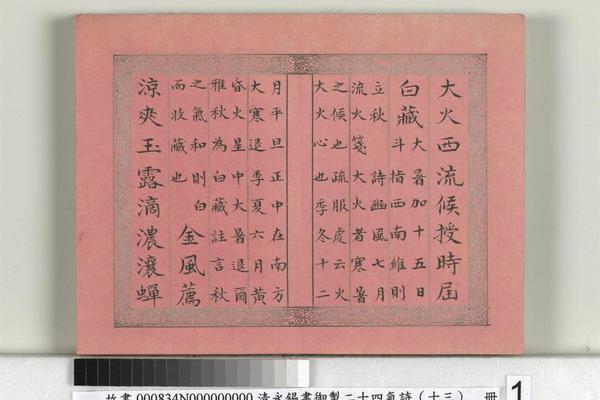 大火西流候授時屆
白藏
大暑加十五日
斗指西南維則
立秋 詩豳風七月
流火箋大火者寒暑
之候也疏服虔云火
大火心也季冬十二
月平旦正中在南方
大寒退季夏六月黃
昏火星中大暑退爾
雅秋為白藏註言秋
之氣和則白
而收藏也
金風薦
涼爽玉露滴濃瀼蟬
故書 000834N000000000 清永錫書御製二十四氣詩（十三） 冊 1